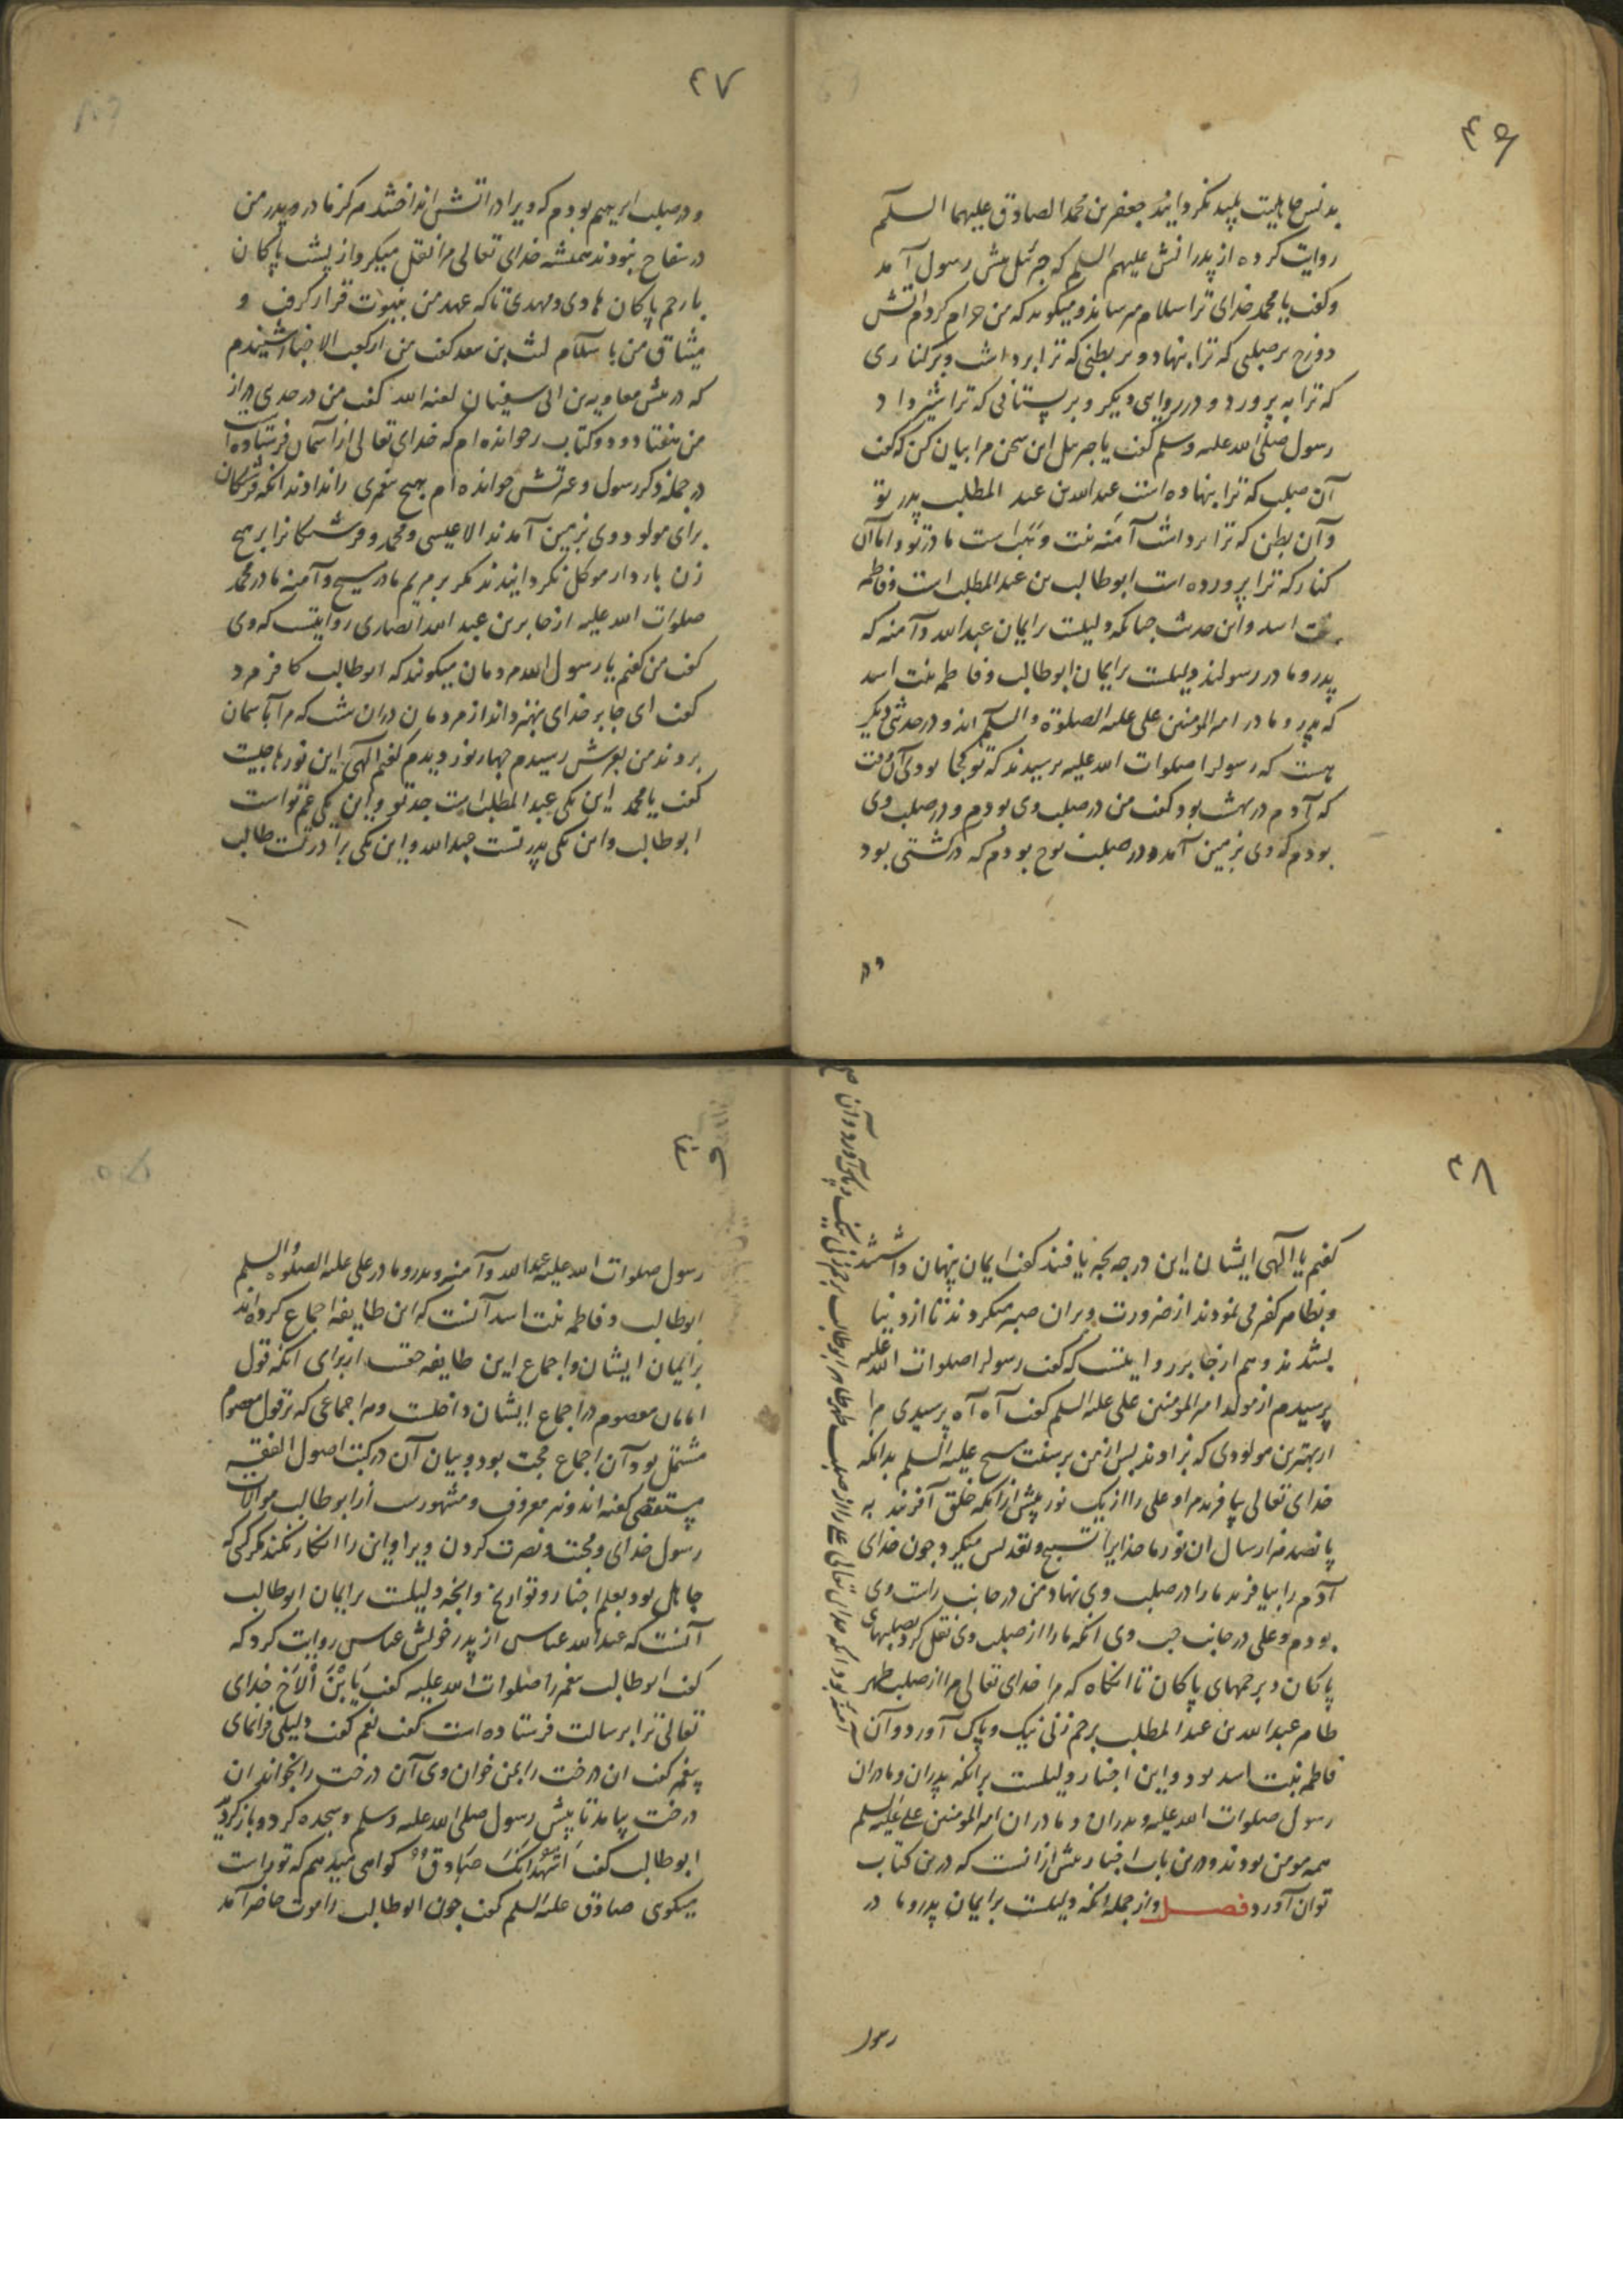 ۴۶
بدنس جاهلیت پلید نکردانید جعفر بن محمد الصادق علیهما السلم
روایت کرده از پدرانش علیهم السلم که جبرئیل پیش رسول آمد
و کفت یا محمد خدای ترا سلام میرساند و میکوید که من حرام کردم اتش
دوزخ بر صلبی که ترا بنهاد و بر بطنی که ترا برداشت و بر کناری
که ترا به پرورد و در روایتی دیکر و بر پستانی که ترا شیر داد
رسول صلی الله علیه وسلم کفت یا جبرئیل این سخن مرا بیان کن که کفت
آن صلب که ترا بنهاده است عبد الله بن عبد المطلب پدر تو
و آن بطن که ترا برداشت آمنه بنت وهب است مادر تو و اما آن
کنار که ترا پرورده است ابوطالب بن عبد المطلب است و فاطمه
بنت اسد و این حدیث جنانکه دلیلست بر ایمان عبد الله و آمنه که
پدر و مادر رسولند دلیلست بر ایمان ابوطالب و فاطمه بنت اسد
که پدر و مادر امیر المؤمنین علی علیه الصلوة والسلم اند و در حدیثی دیکر
هست که رسول را صلوات الله علیه پرسیدند که تو کجا بودی آن وقت
که آدم در بهشت بود کفت من در صلب وی بودم و در صلب وی
بودم که وی بزمین آمد و در صلب نوح بودم که در کشتی بود
و در
۴۷
و در صلب ابرهیم بودم که ویرا در اتش انداختند هرکز مادر و پدر من
در سفاح نبودند همیشه خدای تعالی مرا نقل میکرد از پشت پاکان
با رحم پاکان هادی و مهدی تا که عهد من بنبوت قرار کرفت و
میثاق من باسلام لیث بن سعد کفت من از کعب الاحبار شنیدم
که در پیش معاویه بن ابی سفیان لعنه الله کفت من در حدی دراز
من هفتاد و دو کتاب خوانده ام که خدای تعالی از آسمان فرستاده است
در جمله ذکر رسول و عترتش خوانده ام بهیج پیغمبری را نداوند انکه فرشتکان
برای مولود وی بزمین آمدند الا عیسی و محمد و فرشتکانرا بر هیج
زن باردار موکل نکردانیدند مکر بر مریم مادر مسیح و آمنه مادر محمد
صلوات الله علیه از جابر بن عبد الله انصاری روایتست که وی
کفت من کفتم یا رسول الله مردمان میکویند که ابوطالب کافر مرد
کفت ای جابر خدای بهتر داند از مردمان در آن شب که مرا بآسمان
بردند من بعرش رسیدم چهار نور دیدم کفتم الهی این نورها جیست
کفت یا محمد این یکی عبد المطلب است جد تو و این یکی عم تو است
ابوطالب و این یکی پدر تست عبد الله و این یکی برادر تست طالب
۴۸
کفتم یا الهی ایشان این درجه بچه یافتند کفت ایمان پنهان داشتند
و بظاهر کفر می نمودند از ضرورت و بران صبر میکردند تا از دنیا
بشدند و هم از جابر روایتست که کفت رسول را صلوات الله علیه
پرسیدم از مولد امیر المؤمنین علی علیه السلم کفت آه آه پرسیدی مرا
از بهترین مولودی که بزادند پس از من بر سنت مسیح علیه السلم بدانکه
خدای تعالی بیافرید مرا و علی را از یک نور پیش از انکه خلق آفریند به
پانصد هزار سال ان نور ما خدایرا تسبیح و تقدیس میکرد جون خدای
آدم را بیافرید ما را در صلب وی نهاد من در جانب راست وی
بودم و علی در جانب جب وی انکه ما را از صلب وی نقل کرد بصلبهای
پاکان و برحمهای پاکان تا انکاه که مرا خدای تعالی مرا از صلب طهر
طاهر عبد الله بن عبد المطلب برحم زنی نیک و پاک آورد و آن
فاطمه بنت اسد بود و این اخبار دلیلست برانکه پدران و مادران
رسول صلوات الله علیه و پدران و مادران امیر المؤمنین علی علیه السلم
همه مومن بودند و درین باب اخبار بیش از انست که درین کتاب
توان آورد فصل و از جمله انکه دلیلست بر ایمان پدر و مادر
آمنه بود انکه خدای تعالی علی را از صلب طهر طاهر ابوطالب برحم زنی نیک و پاک آورد و آن
رسول
رسول صلوات الله علیه عبد الله و آمنه و پدر و مادر علی علیه الصلوة والسلم
ابوطالب و فاطمه بنت اسد آنست که این طایفه اجماع کرده اند
بر ایمان ایشان و اجماع این طایفه حقست از برای انکه قول
امامان معصوم در اجماع ایشان داخلست و هر اجماعی که بر قول معصوم
مشتمل بود آن اجماع حجت بود و بیان آن در کتب اصول الفقه
مستقصی کفته اند و نیز معروف و مشهورست از ابوطالب موالات
رسول خدای و محبت و نصرت کردن ویرا و این را انکار نکند مکر کسی که
جاهل بود بعلم اخبار و تواریخ و انچه دلیلست بر ایمان ابوطالب
آنست که عبد الله عباس از پدر خویش عباس روایت کرد که
کفت ابوطالب پیغمبر را صلوات الله علیه کفت یَا بْنَ الْاَخ خدای
تعالی ترا برسالت فرستاده است کفت نعم کفت دلیلی فرانمای
پیغمبر کفت ان درخت را بمن خوان وی آن درخت را بخواند ان
درخت بیامد تا پیش رسول صلی الله علیه وسلم و سجده کرد و بازکردید
ابوطالب کفت اَشْهَدُ اَنَّکَ صَادِقٌ کواهی میدهم که تو راست
میکوی صادق علیه السلم کفت جون ابوطالب را موت حاضر آمد